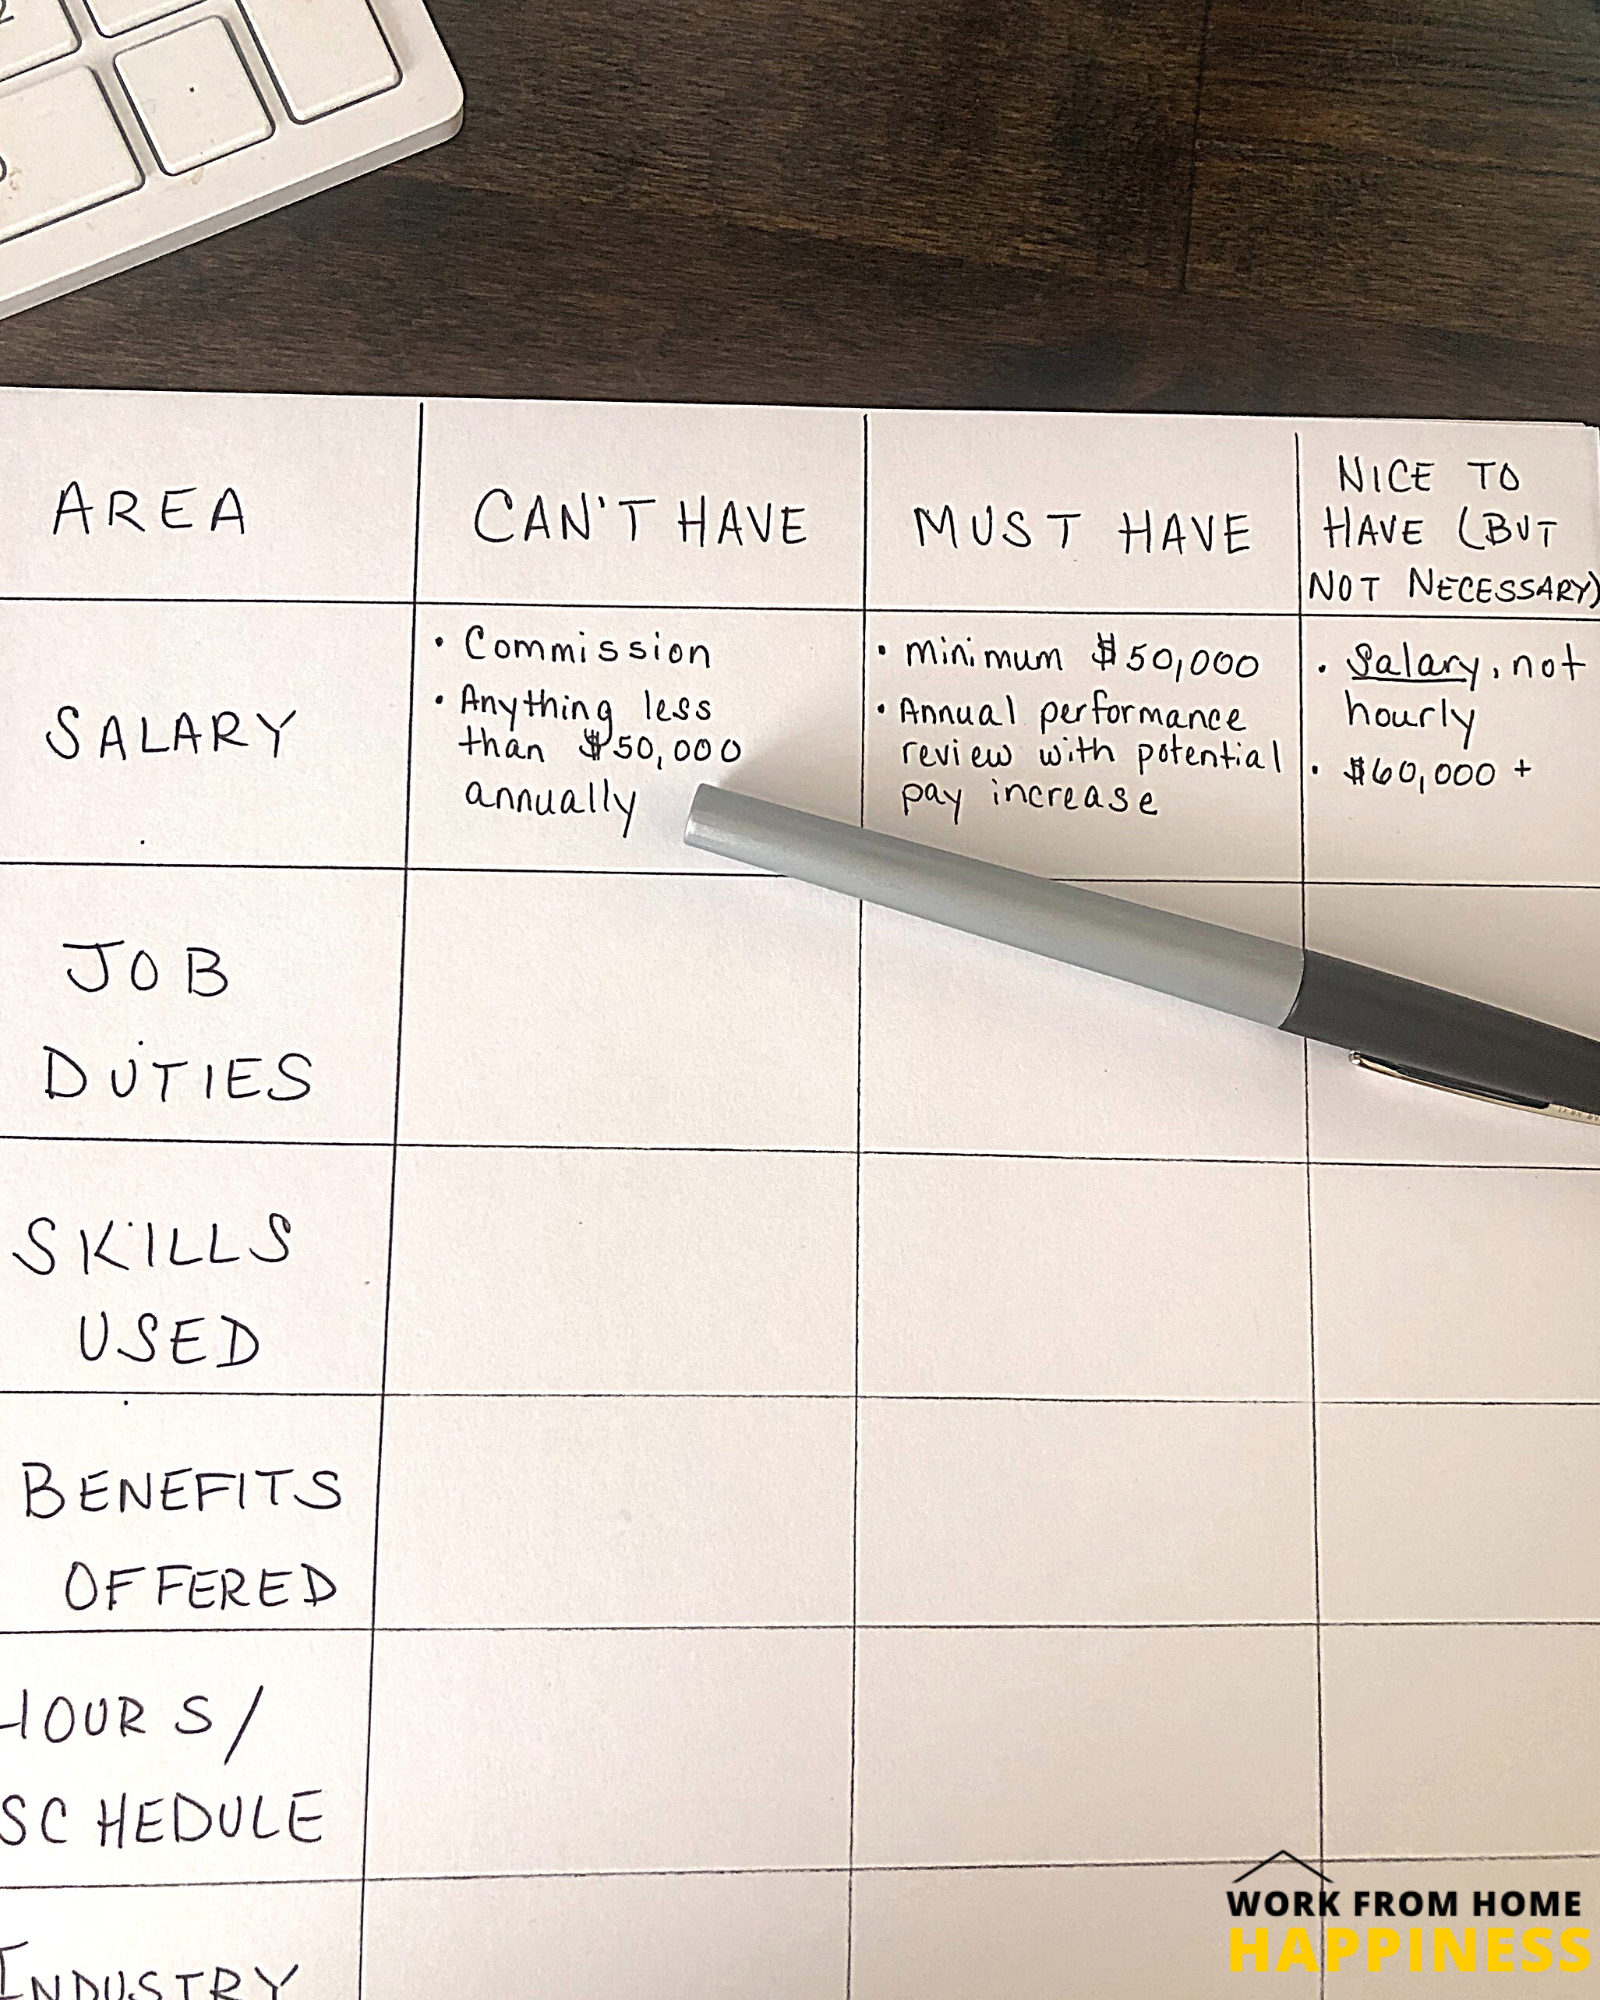 AREA
CAN'T HAVE
MUST HAVE
NICE TO
HAVE (BUT
NOT NECESSARY)
SALARY
• Commission
• Anything less
than $50,000
annually
• Minimum $50,000
• Annual performance
review with potential
pay increase
• Salary, not
hourly
• $60,000 +
JOB
DUTIES
SKILLS
USED
BENEFITS
OFFERED
HOURS/
SCHEDULE
INDUSTRY
WORK FROM HOME
HAPPINESS